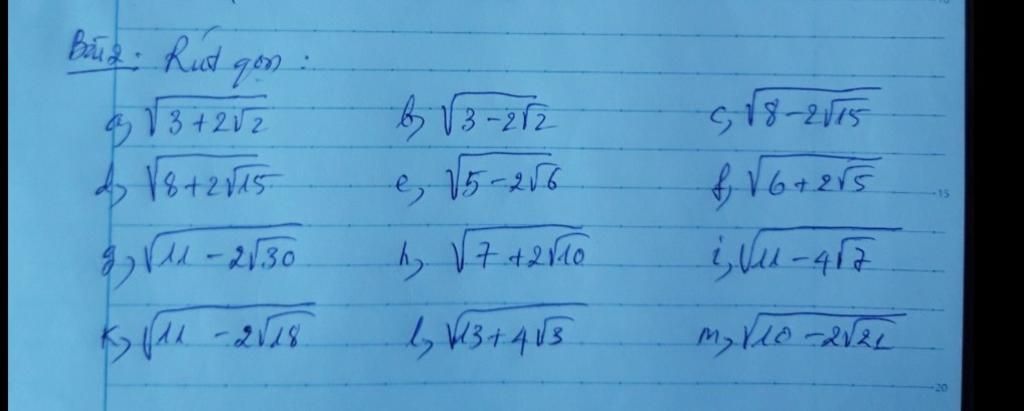 Bài 2: Rút gọn:
a, √(3+2√2) b, √(3-2√2) c, √(8-2√15)
d, √(8+2√15) e, √(5-2√6) f, √(6+2√5)
g, √(11-2√30) h, √(7+2√10) i, √(11-4√7)
k, √(11-2√18) l, √(13+4√3) m, √(10-2√21)
15
20